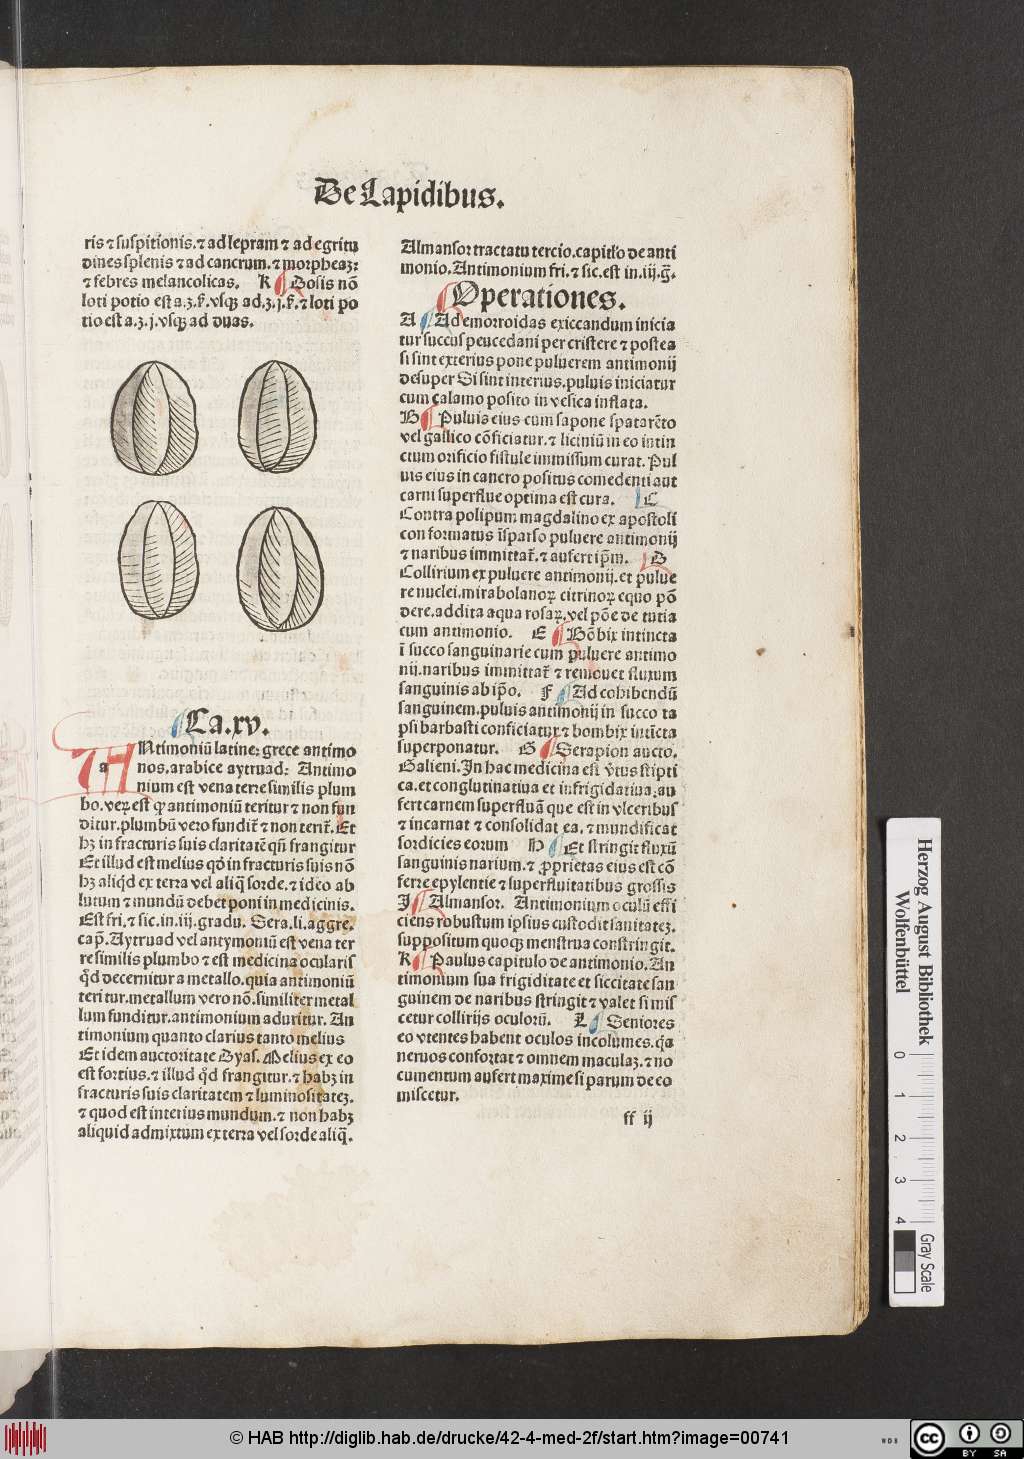 De Lapidibus.
ris ⁊ suspitionis.⁊ ad lepram ⁊ ad egritu
dines splenis ⁊ ad cancrum.⁊ morpheaꝫ:
⁊ febres melancolicas. K Dosis nō
loti potio est a.ʒ.ẜ.vsqꝫ ad.ʒ.j.ẜ.⁊ loti po
tio est a.ʒ.j.vsqꝫ ad duas.
Ca.xv.
ANtimoniū latine: grece antimo
a
nos.arabice aytruad: Antimo
nium est vena terre similis plum
bo.veꝝ est qꝫ antimoniū teritur ⁊ non fun
ditur.plumbū vero fundit᷑ ⁊ non terit᷑. Et
hꝫ in fracturis suis claritatē qn̄ frangitur
Et illud est melius qd̓ in fracturis suis nō
hꝫ aliqd̓ ex terra vel aliq̄ sorde.⁊ ideo ab
lutum ⁊ mundū debet poni in medicinis.
Est fri.⁊ sic.in.iij.gradu. Sera.li.aggre.
cap̄. Aytruad vel antymoniū est vena ter
re similis plumbo ⁊ est medicina ocularis
qd̓ decernitur a metallo.quia antimoniū
teritur.metallum vero nō.similiter metal
lum funditur.antimonium aduritur. An
timonium quanto clarius tanto melius
Et idem auctoritate Dyas. Melius ex eo
est fortius.⁊ illud qd̓ frangitur.⁊ habꝫ in
fracturis suis claritatem ⁊ luminositateꝫ.
⁊ quod est interius mundum.⁊ non habꝫ
aliquid admixtum ex terra vel sorde aliq̄.
Almansor tractatu tercio.capitl̓o de anti
monio. Antimonium fri.⁊ sic.est in.iij.ḡ.
Operationes.
A Ad emorroidas exiccandum inicia
tur succus peucedani per cristere ⁊ postea
si sint exterius pone puluerem antimonij
desuper Si sint interius.puluis iniciatur
cum calamo posito in vesica inflata.
B Puluis eius cum sapone spatarēto
vel gallico cōficiatur.⁊ liciniū in eo intin
ctum orificio fistule immissum curat. Pul
uis eius in cancro positus comedenti aut
carni superflue optima est cura. C
Contra polipum magdalino ex apostoli
con formatus īsparso puluere antimonij
⁊ naribus immittat᷑.⁊ aufert ip̄m. D
Collirium ex puluere antimonij.et pulue
re nuclei.mirabolanoꝝ citrinoꝝ equo pō
dere.addita aqua rosaꝝ.vel pōe de tutia
cum antimonio. E Bōbix intincta
ī succo sanguinarie cum puluere antimo
nij.naribus immittat᷑ ⁊ remouet fluxum
sanguinis ab ip̄o. F Ad cohibendū
sanguinem.puluis antimonij in succo ta
psi barbasti conficiatur ⁊ bombix intīcta
superponatur. G Serapion aucto.
Galieni. In hac medicina est v̓tus stipti
ca.et conglutinatiua et infrigidatiua.au
fert carnem superfluā que est in vlceribus
⁊ incarnat ⁊ consolidat ea.⁊ mundificat
sordicies eorum H Et stringit fluxū
sanguinis narium.⁊ ꝓprietas eius est cō
ferre epylentie ⁊ superfluitatibus grossis
J Almansor. Antimonium oculū effi
ciens robustum ipsius custodit sanitateꝫ.
suppositum quoqꝫ menstrua constringit.
K Paulus capitulo de antimonio. An
timonium sua frigiditate et siccitate san
guinem de naribus stringit ⁊ valet si mis
cetur collirijs oculorū. L Seniores
eo vtentes habent oculos incolumes.qꝛa
neruos confortat ⁊ omnem maculaꝫ.⁊ no
cumentum aufert maxime si parum de eo
miscetur.
ff ij
Herzog August Bibliothek
Wolfenbüttel
0 1 2 3 4
Gray Scale
© HAB http://diglib.hab.de/drucke/42-4-med-2f/start.htm?image=00741
WDB
cc BY SA